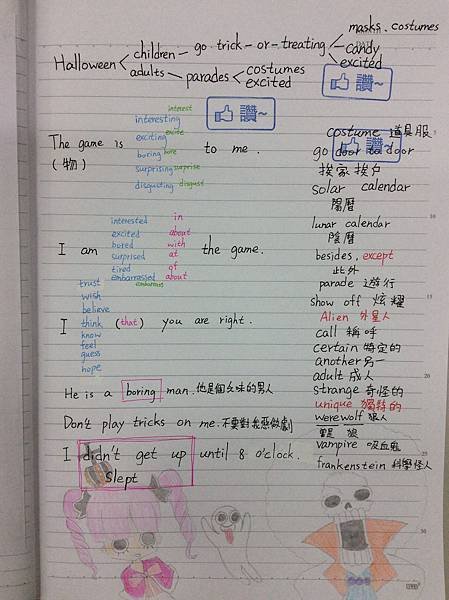 masks. costumes
Halloween children go trick-or-treating candy
excited
adults parades costumes
excited
讚~
讚~
讚~
interesting interest
exciting excite
The game is boring bore to me.
(物)
surprising surprise
disgusting disgust
interested in
excited about
bored with
I am surprised at the game.
tired of
embarrassed about
embarrass
trust
wish
believe
I think (that) you are right.
know
feel
guess
hope
He is a boring man. 他是個乏味的男人
Don't play tricks on me. 不要對我惡做劇
I didn't get up until 8 o'clock.
slept
costume 道具服
go door to door
挨家挨戶
solar calendar
陽曆
lunar calendar
陰曆
besides, except
此外
parade 遊行
show off 炫耀
Alien 外星人
call 稱呼
certain 特定的
another 另一
adult 成人
strange 奇怪的
unique 獨特的
werewolf 狼人
狼
vampire 吸血鬼
frankenstein 科學怪人
5
10
15
20
25
30